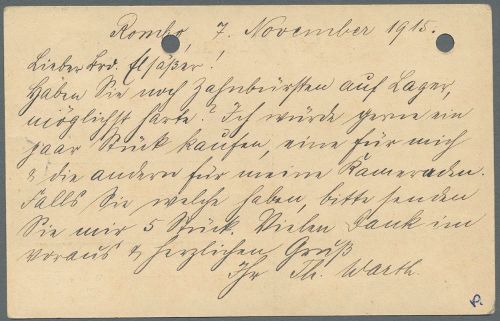 Romko, 7. November 1915.
Lieber Brd. Elsäßer!
Haben Sie noch Zahnbürsten auf Lager,
möglichst harte? Ich würde gerne ein
paar Stück kaufen, eine für mich
& die andern für meine Kameraden.
Falls Sie welche haben, bitte senden
Sie mir 5 Stück. Vielen Dank im
voraus & herzlichen Gruß
Ihr Th. Warth.
P.